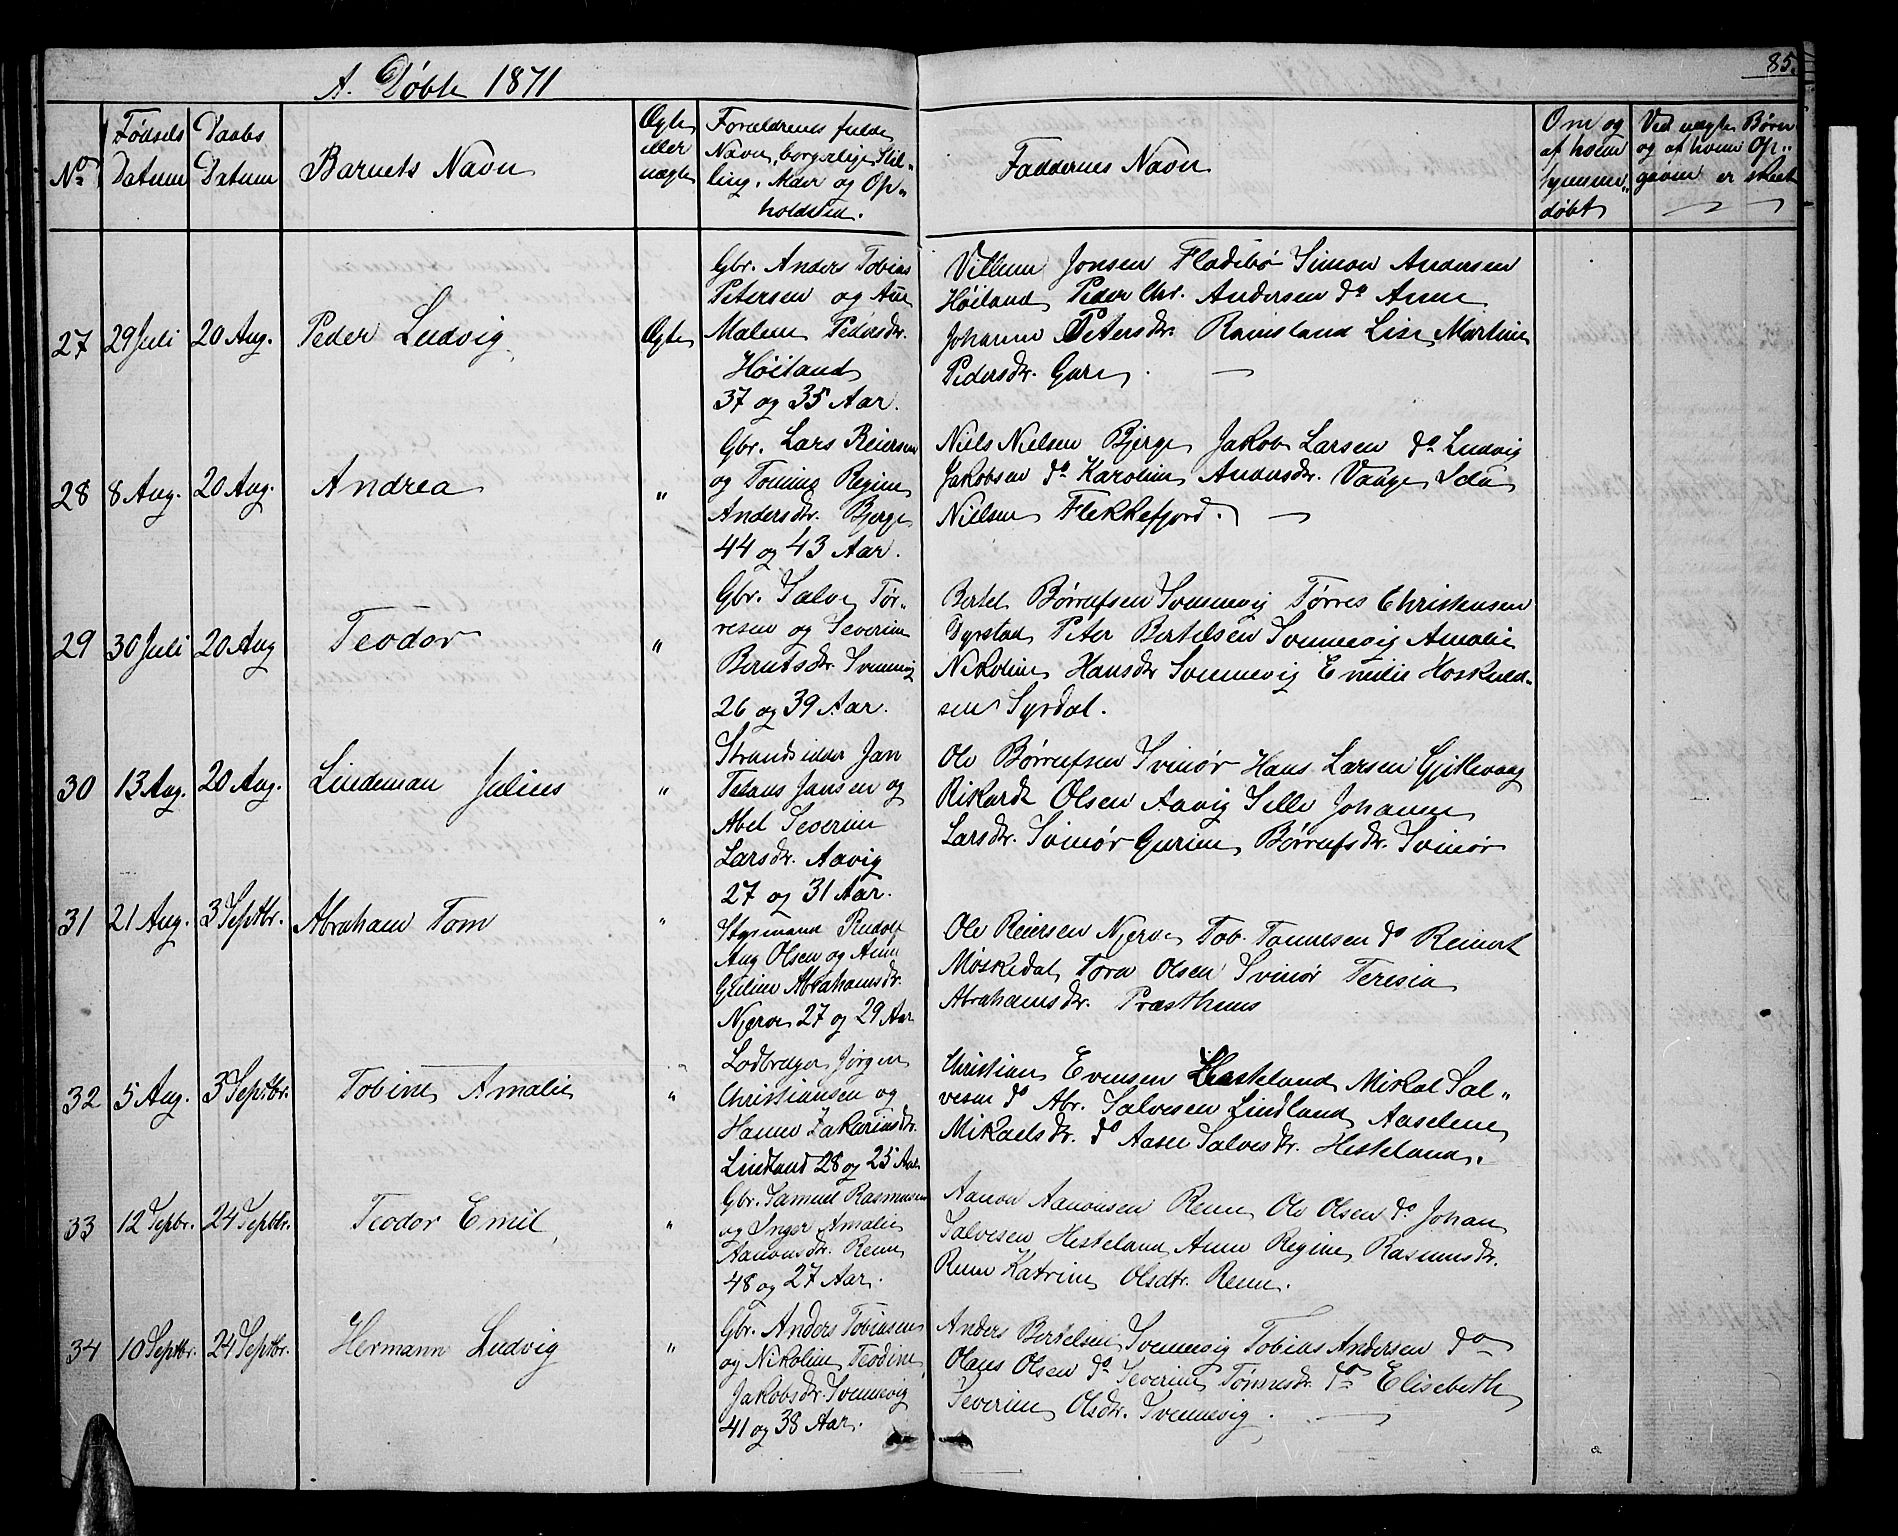 A. Døbte 1871
85.
No
Fødsels
Datum
Daabs
Datum
Barnets Navn
Ægte
eller
uægte
Forældrenes fulde
Navn, borgerlige Stil-
ling, Alder og Op-
holdsted.
Faddernes Navn
Om og
af hvem
hjemme-
døbt
Ved uægte Børn
og af hvem Op-
gaven er skeet
27 29 Juli 20 Aug. Peder Ludvig Ægte
Gbr. Anders Tobias
Petersen og Ane
Malene Pedersdr.
Høiland
37 og 35 Aar.
Villum Jonsen Fladebø Simon Andersen
Høiland Peder Chr. Andersen do Anne
Johanne Petersdr. Ramsland Lise Martine
Pedersdr. Gare
28 8 Aug. 20 Aug. Andrea "
Gbr. Lars Reiersen
og Tonine Regine
Andersdr. Bjerge
44 og 43 Aar.
Niels Nielsen Bjerge Jakob Larsen do Ludvig
Jakobsen do Karoline Anansdr. Vange Ida
Nielsen Flekkefjord.
29 30 Juli 20 Aug Teodor "
Gbr. Salve Tør-
resen og Severine
Berntsdr Svennevig
26 og 39 Aar.
Bertel Børrufsen Svennevig Tørres Christensen
Dyrstad Peter Bertelsen Svennevig Amalie
Nikoline Hansdr Svennevig Emilie Hoskuld-
sen Syrdal.
30 13 Aug. 20 Aug. Lindeman Julius "
Strandsidder Jan
Telaus Jansen og
Abel Severine
Larsdr. Aavig
27 og 31 Aar.
Ole Børrufsen Svinør Hans Larsen Gjillevaag
Rikardt Olsen Aavig Sille Johanne
Larsdr. Svinør Gurine Børrufsdr. Svinør
31 21 Aug. 3 Septbr. Abraham Tom "
Styrmand Rudolf
Aug Olsen og Anne
Guline Abrahamsdr.
Njerve 27 og 29 Aar
Ole Reiersen Njerve Tob. Tønnesen do Reinert
Møskedal Tora Olsen Svinør Teresia
Abrahamsdr. Præsthuus
32 5 Aug. 3 Septbr. Tobine Amalie "
Lodbruger Jørgen
Christiansen og
Hanne Zakariasdr.
Lindland 28 og 25 Aar
Christian Evensen Hesteland Mikal Sal-
vesen do Abr. Salvesen Lindland Aaselene
Mikaelsdr. do Aase Salvesdr. Hesteland.
33 12 Sepbr. 24 Septbr. Teodor Emil "
Gbr. Samuel Rasmusen
og Inger Amalie
Aanonsdr. Renne
48 og 27 Aar.
Aanon Aanonsen Renne Ole Olsen do Johan
Salvesen Hesteland Anne Regine Rasmusdr.
Renne Katrine Olsdtr. Renne.
34 10 Septbr. 24 Septbr. Hermann Ludvig "
Gbr. Anders Tobiasen
og Nikoline Teodine
Jakobsdr. Svennevig
41 og 38 Aar.
Anders Bertelsen Svennevig Tobias Andersen do
Olaus Olsen do Severine Tønnesdr. do Elisebeth
Severine Olsdr. Svennevig.